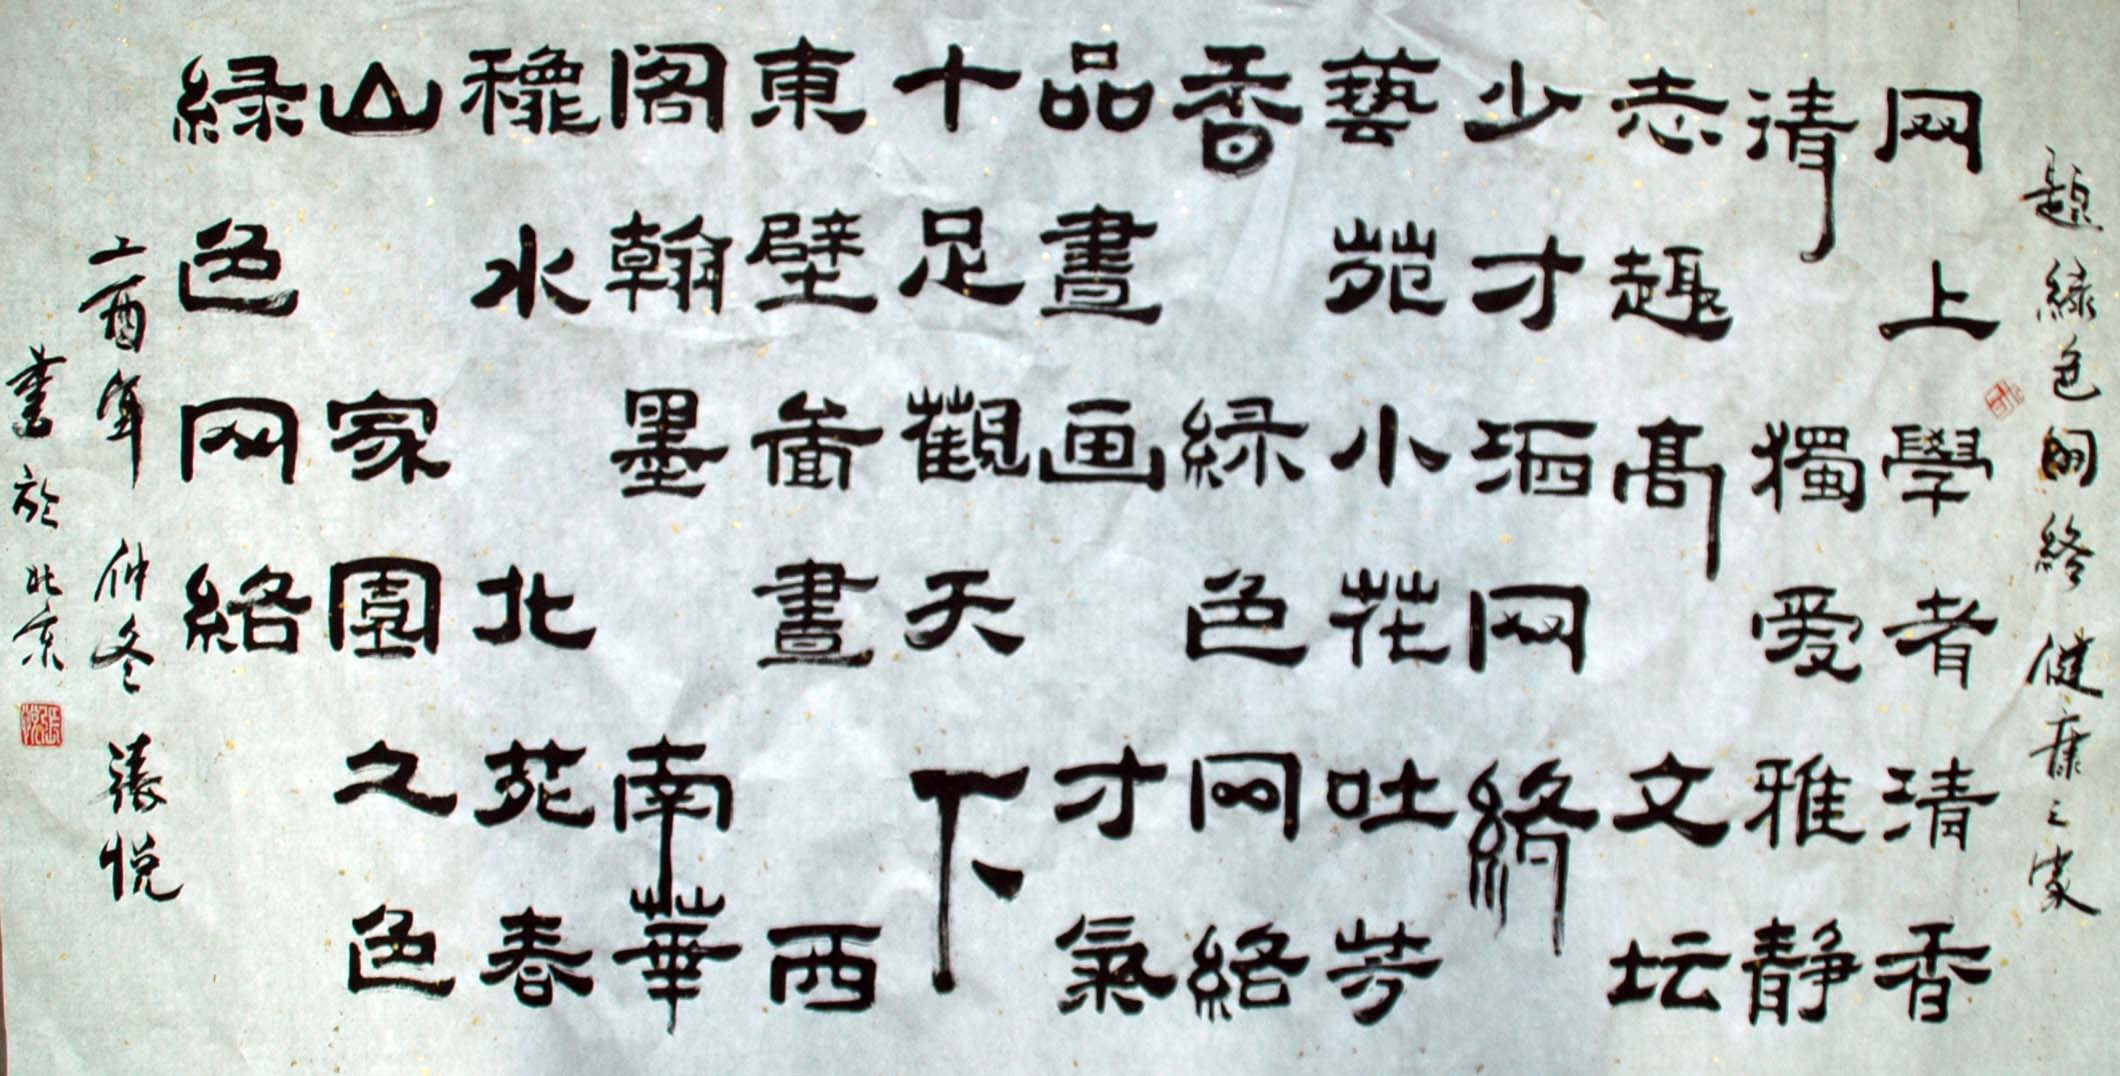 題綠色网络健康之家
网上學者清香
清獨愛雅静
志趣高文坛
少才洒网絡
藝苑小花吐芳
香綠色网絡
品書画才氣
十足觀天下
東壁啚書西
阁翰墨南華
水北苑春
山家園之色
綠色网絡
乙酉年仲冬張悦
書於北京